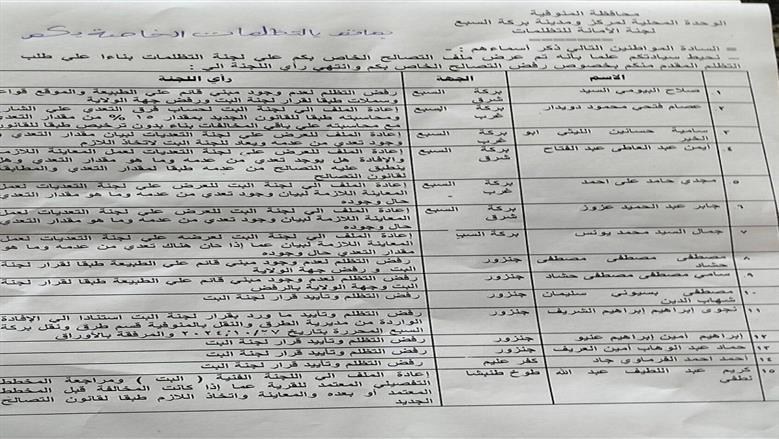 محافظة المنوفية
الوحدة المحلية لمركز ومدينة بركة السبع
لجنة الأمانة للتظلمات
بالتظلمات الخاصة بكم
السادة المواطنين التالي ذكر أسماءهم :-
نحيط سيادتكم علما بأنه تم عرض ملف التصالح الخاص بكم علي لجنة التظلمات بناءا علي طلب
التظلم المقدم منكم بخصوص رفض التصالح الخاص بكم وانتهي رأي اللجنة الي :-
الأسم الجهة رأي اللجنة
١ صلاح البيومي السيد بركة السبع شرق رفض التظلم لعدم وجود مبني قائم علي الطبيعة والموقع قواعد
وسملات طبقا لقرار لجنة البت ورفض جهة الولاية
٢ عصام فتحي محمود دويدار بركة السبع غرب إعادة الملف الي لجنة البت لحساب قيمة التعدي علي الشارع
ومحاسبته طبقا للقانون الجديد بمقدار ١٥ % من مقدار التعدي
مع محاسبته علي باقي المخالفات بناء بدون ترخيص طبقا للقانون
٣ سامية حسانين الليثي ابو الخير بركة السبع غرب إعادة الملف للعرض علي لجنة التعديات لبيان مقدار التعدي
وجود تعدي من عدمه ويعاد للجنة البت لاتخاذ اللازم
٤ ايمن عبد العاطي عبد الفتاح بركة السبع شرق إعادة الملف للعرض علي لجنة التعديات لعمل المعاينة اللازمة
والإفادة هل يوجد تعدي من عدمه وما هو مقدار التعدي وهل
ينطبق عليه التصالح من عدمه طبقا لمقدار التعدي والمطابق
لقانون التصالح
٥ مجدي حامد علي احمد بركة السبع غرب إعادة الملف الي لجنة البت للعرض علي لجنة التعديات لعمل
المعاينة اللازمة لبيان وجود تعدي من عدمه وما هو مقدار التعدي
حال وجوده
٦ جابر عبد الحميد عزوز بركة السبع شرق إعادة الملف الي لجنة البت للعرض علي لجنة التعديات لعمل
المعاينة اللازمة لبيان وجود تعدي من عدمه وما هو مقدار التعدي
حال وجوده
٧ جمال السيد محمد يونس بركة السبع إعادة الملف الي لجنة البت لعرضه علي لجنة التعديات لعمل
المعاينة اللازمة لبيان عما إذا كان هناك تعدي من عدمه وما هو
مقدار التعدي حال وجوده
٨ مصطفي مصطفي مصطفي حشاد جنزور رفض التظلم لعدم وجود مبني قائم علي الطبيعة طبقا لقرار لجنة
البت و رفض جهة الولاية
٩ سامي مصطفي مصطفي حشاد جنزور رفض التظلم لعدم وجود مبني قائم علي الطبيعة طبقا لقرار لجنة
البت وجهة الولاية بالرفض
١٠ مصطفي بسيوني سليمان شهاب الدين جنزور رفض التظلم وتأييد قرار لجنة البت
١١ نجوي ابراهيم ابراهيم الشريف جنزور رفض التظلم وتأييد ما ورد بقرار لجنة البت استنادا الي الإفادة
الواردة من مديرية الطرق والنقل بالمنوفية قسم طرق ونقل بركة
السبع المحررة بتاريخ ٢٠٢٤/١٠/٢٠ والمرفقة بالأوراق
١٢ ابراهيم امين ابراهيم عنبو جنزور رفض التظلم وتأييد قرار لجنة البت
١٣ حماد عبد الوهاب امين العريف جنزور رفض التظلم وتأييد قرار لجنة البت
١٤ احمد احمد الفرماوي جاد كفر عليم رفض التظلم وتأييد قرار لجنة البت
١٥ كريم عبد اللطيف عبد الله لطفي طوخ طنبشا إعادة الملف الي اللجنة الفنية ( البت ) ومراجعة المخطط
التفصيلي المعتمد للقرية عما إذا كانت المخالفة قبل المخطط
المعتمد أو بعده والمعاينة واتخاذ اللازم طبقا لقانون التصالح
الجديد